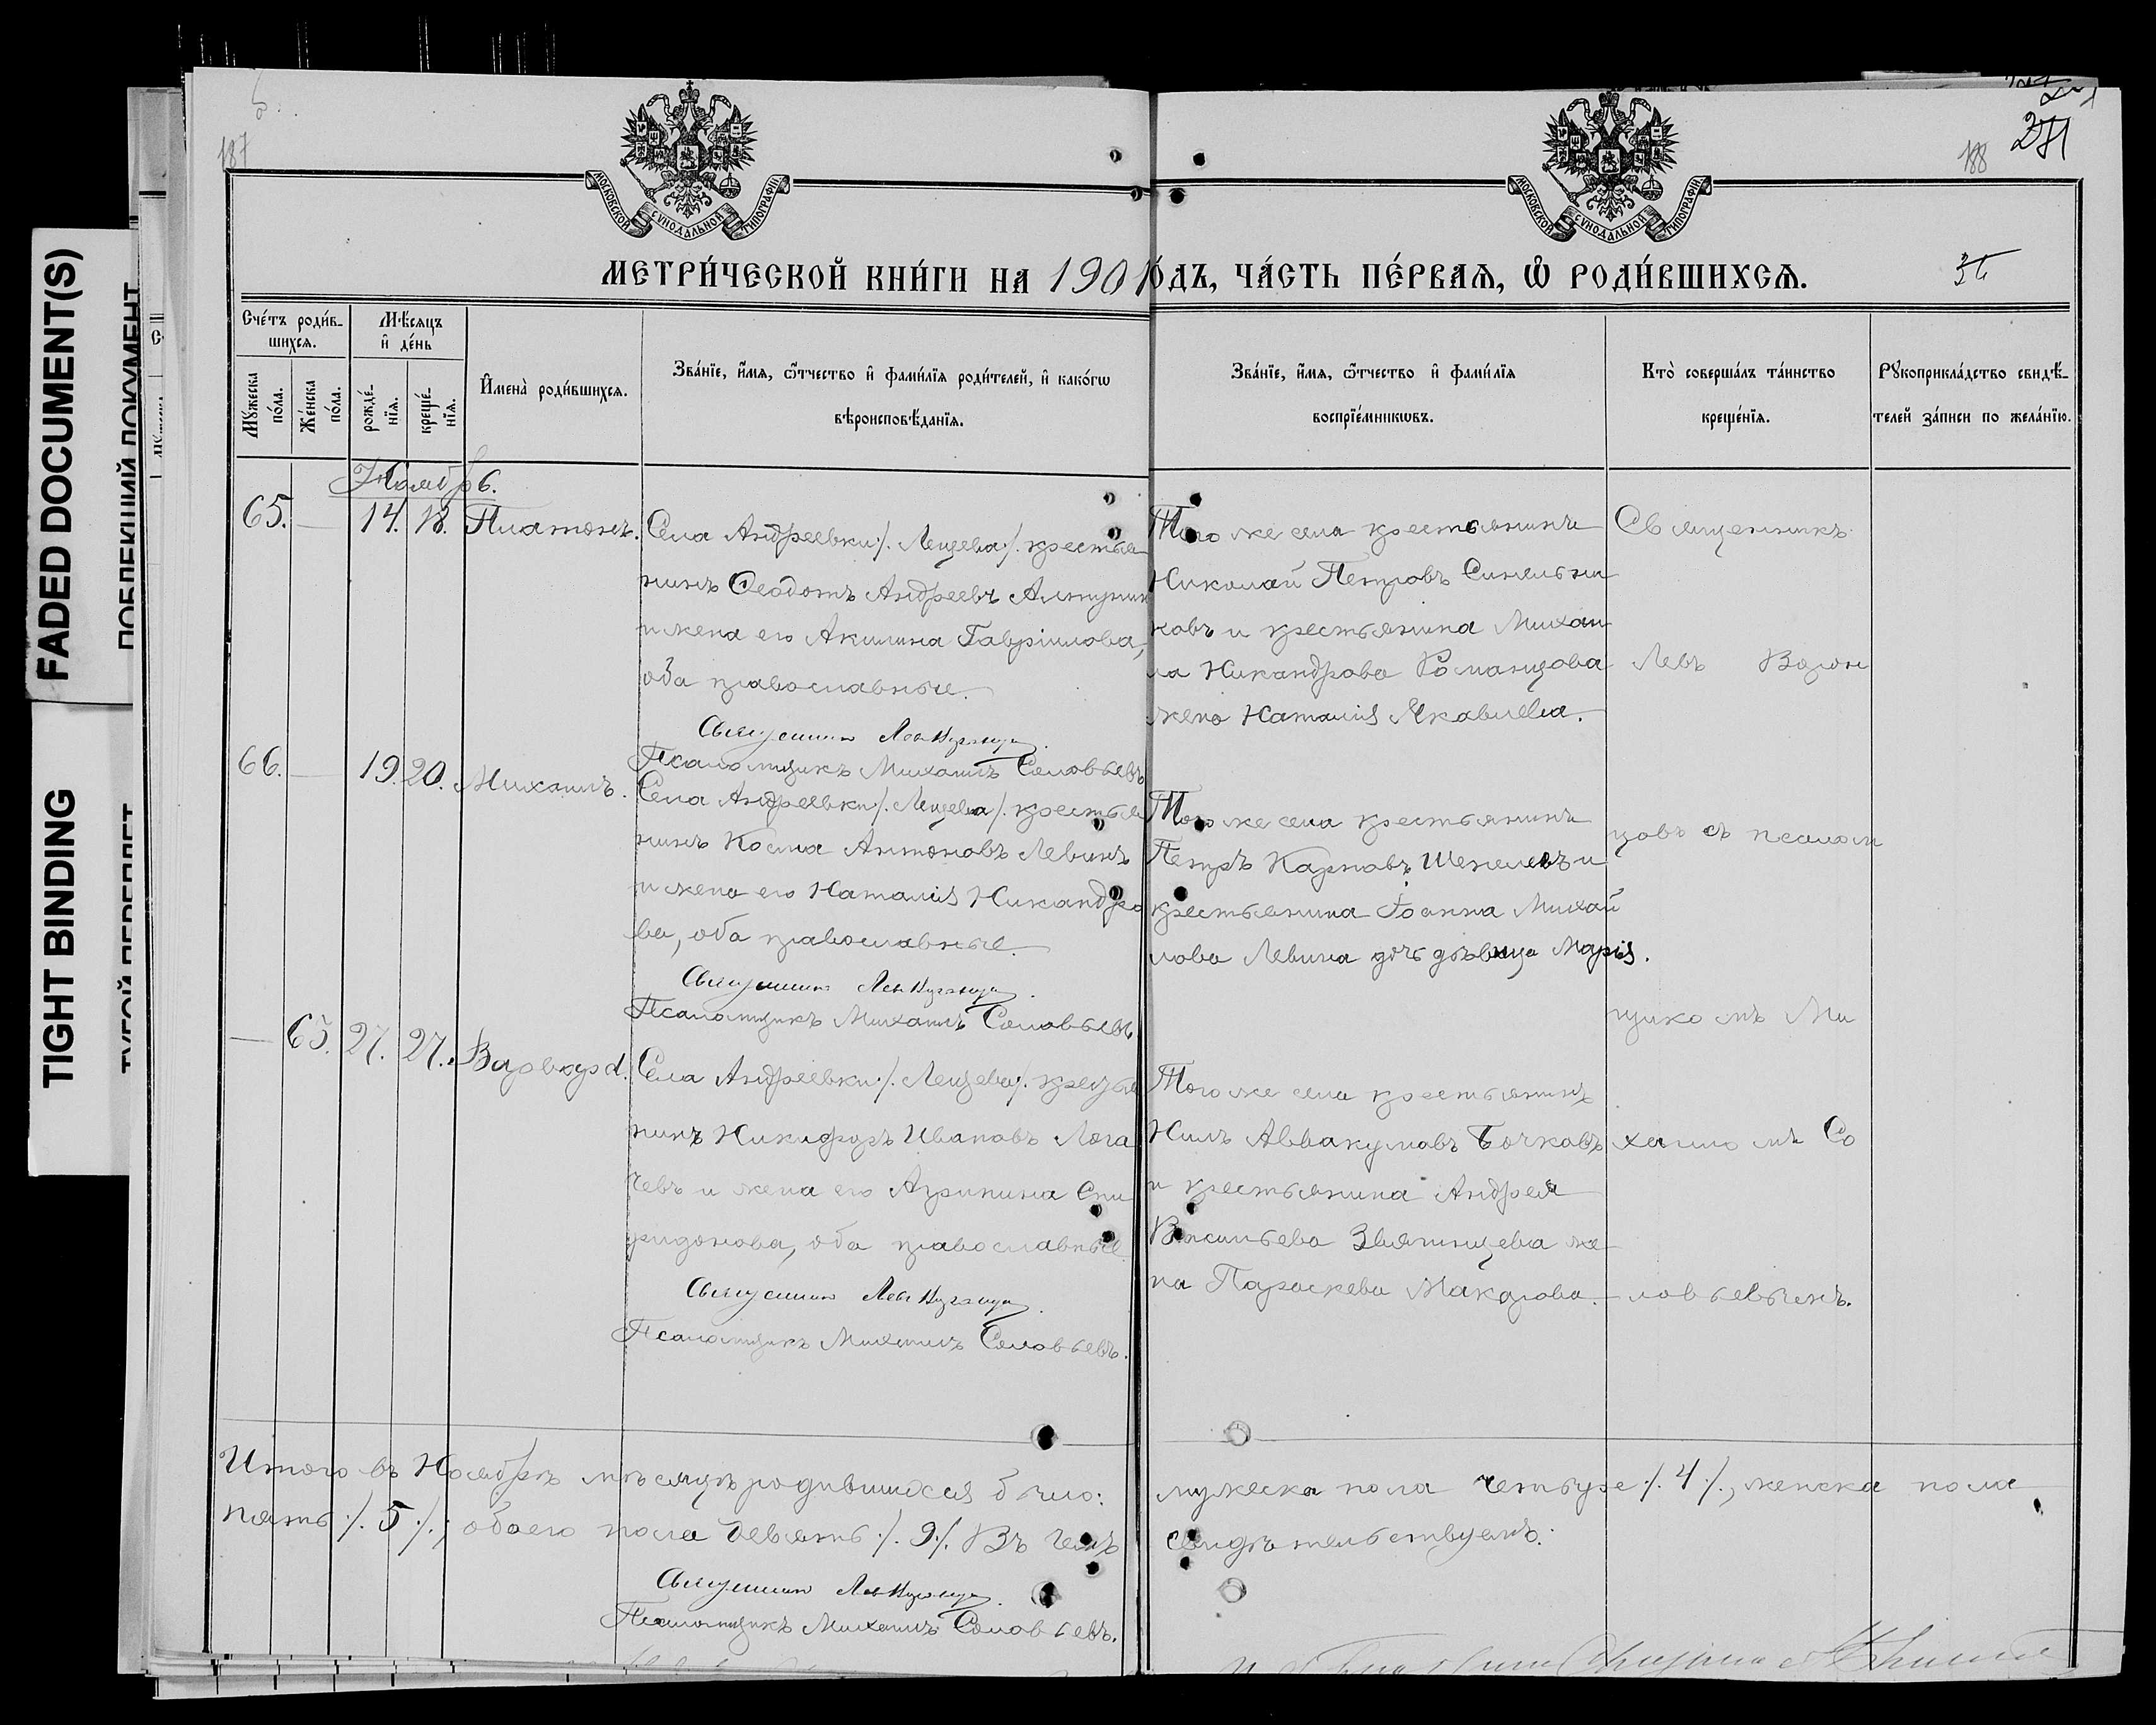 FADED DOCUMENT(S)
TIGHT BINDING
187
188
МОСКОВСКОЙ СѴНОДАЛЬНОЙ ТИПОГРАФІИ
МОСКОВСКОЙ СѴНОДАЛЬНОЙ ТИПОГРАФІИ
МЕТРИ́ЧЕСКОЙ КНИ́ГИ НА 1901 ГОДЪ, ЧА́СТЬ ПЕ́РВАѦ, Ѡ РОДИ́ВШИХСѦ.
Сче́тъ роди́в-
шихсѧ.
Мѣ́сѧцъ
и де́нь
Мꙋ́жеска
по́ла.
Же́нска
по́ла.
рожде́-
нїѧ.
креще́-
нїѧ.
Имена̀ роди́вшихсѧ.
Зва́нїе, и́мѧ, ѻ́тчество и фами́лїѧ роди́телей, и како́гѡ
вѣроисповѣ́данїѧ.
Зва́нїе, и́мѧ, ѻ́тчество и фами́лїѧ
воспрїе́мникѡвъ.
Кто̀ соверша́лъ та́инство
креще́нїѧ.
Рꙋкоприкла́дство свидѣ́-
телей за́писи по жела́нїю.
Ноябрь.
65. — 14. 18. Платонъ.
Села Андреевки /. Лещева /. крестья
нинъ Ѳеодотъ Андреевъ
и жена его Акилина Гавріилова,
оба православные.
Священникъ Левъ
Псаломщикъ Михаилъ Соловьевъ
Того же села крестьянинъ
Николай Петровъ Синельни
ковъ и крестьянина Михаи
ла Никандрова Романцова
жена Наталія Яковлева.
66. — 19. 20. Михаилъ.
Села Андреевки /. Лещева /. крестья
нинъ Косма Антоновъ Левинъ
и жена его Наталія Никандро
ва, оба православные.
Священникъ Левъ
Псаломщикъ Михаилъ Соловьевъ
Того же села крестьянинъ
Петръ Карповъ Шепелевъ и
крестьянина Іоанна Михай
лова Левина дочь дѣвица Марія.
— 65. 27. 27. Варвара.
Села Андреевки /. Лещева /. кресть
нинъ Никифоръ Ивановъ Лога
чевъ и жена его Агрипина Спи
ридонова, оба православные
Священникъ Левъ
Псаломщикъ Михаилъ Соловьевъ.
Того же села крестьянинъ
Нилъ Аввакумовъ Бочковъ
и крестьянина Андрея
Васильева Звягинцева же
на Параскева Макарова.
Священникъ
Левъ
цовъ съ псалом
щикомъ Ми
хаиломъ Со
ловьевымъ.
Итого въ Ноябрѣ мѣсяцѣ родившихся было: мужеска пола четыре /. 4 /., женска пола
пять /. 5 /.; обоего пола девять /. 9 /. Въ чемъ свидѣтельствуемъ:
Священникъ Левъ
Псаломщикъ Михаилъ Соловьевъ.